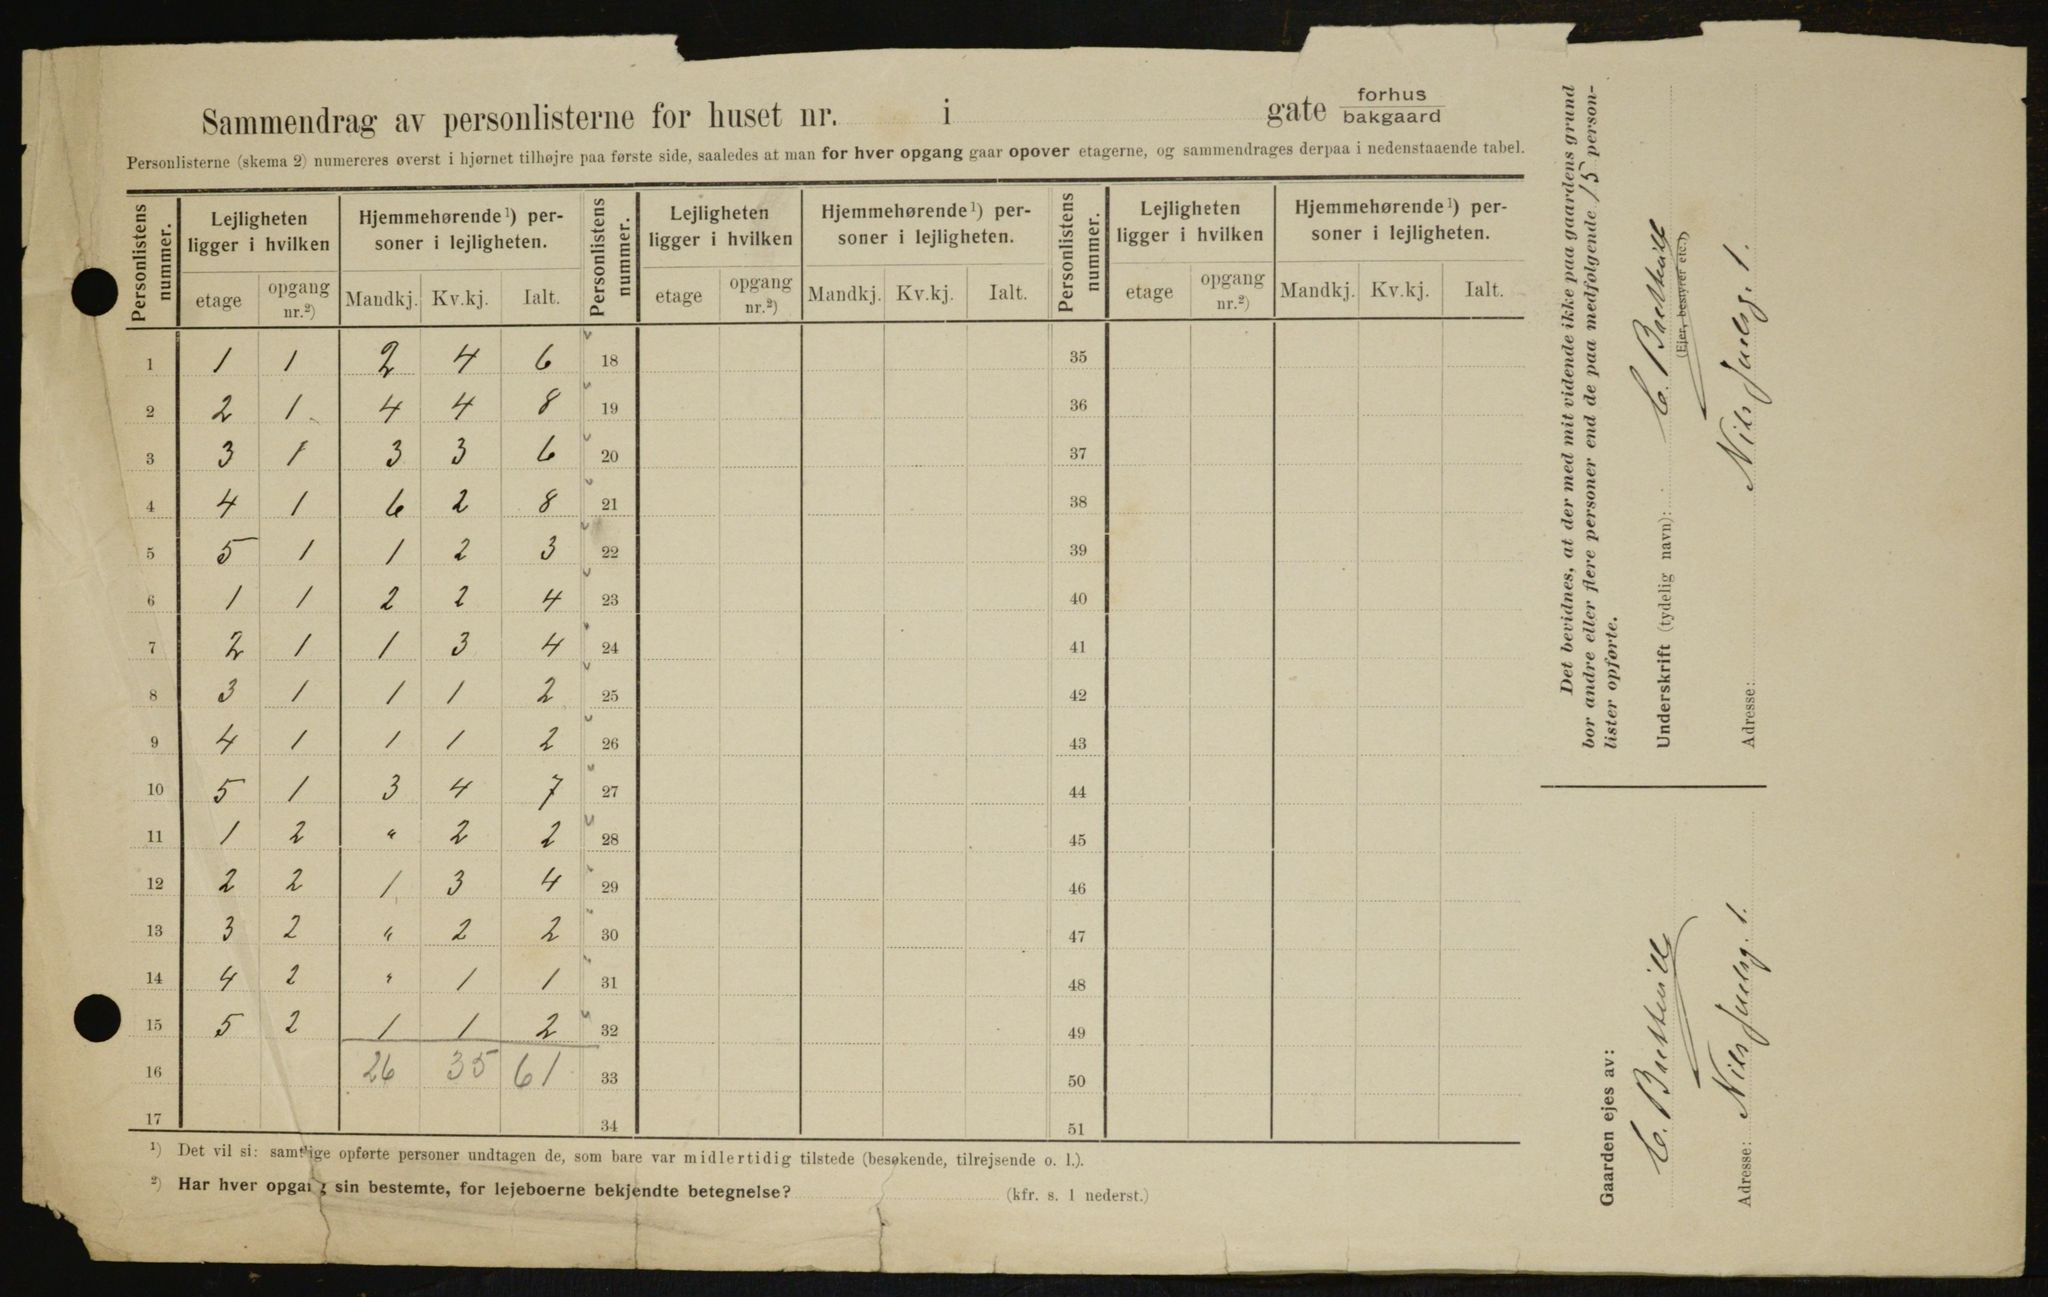 Sammendrag av personlisterne for huset nr. i gate forhus bakgaard
Personlisterne (skema 2) numereres øverst i hjørnet tilhøjre paa første side, saaledes at man for hver opgang gaar opover etagerne, og sammendrages derpaa i nedenstaaende tabel.
Personlistens nummer. Lejligheten ligger i hvilken Hjemmehørende¹) personer i lejligheten. Personlistens nummer. Lejligheten ligger i hvilken Hjemmehørende¹) personer i lejligheten. Personlistens nummer. Lejligheten ligger i hvilken Hjemmehørende¹) personer i lejligheten.
etage opgang nr.²) Mandkj. Kv.kj. Ialt. etage opgang nr.²) Mandkj. Kv.kj. Ialt. etage opgang nr.²) Mandkj. Kv.kj. Ialt.
1 1 1 2 4 6 18 35
2 2 1 4 4 8 19 36
3 3 1 3 3 6 20 37
4 4 1 6 2 8 21 38
5 5 1 1 2 3 22 39
6 1 1 2 2 4 23 40
7 2 1 1 3 4 24 41
8 3 1 1 1 2 25 42
9 4 1 1 1 2 26 43
10 5 1 3 4 7 27 44
11 1 2 " 2 2 28 45
12 2 2 1 3 4 29 46
13 3 2 " 2 2 30 47
14 4 2 " 1 1 31 48
15 5 2 1 1 2 32 49
16 26 35 61 33 50
17 34 51
¹) Det vil si: samtlige opførte personer undtagen de, som bare var midlertidig tilstede (besøkende, tilrejsende o. l.).
²) Har hver opgang sin bestemte, for lejeboerne bekjendte betegnelse? (kfr. s. 1 nederst.)
Det bevidnes, at der med mit vidende ikke paa gaardens grund
bor andre eller flere personer end de paa medfølgende 15 person-
lister opførte.
Underskrift (tydelig navn): C.
(Ejer, bestyrer etc.)
Adresse: Nils Juelsg. 1.
Gaarden ejes av:
C.
Adresse: Nils Juelsg. 1.